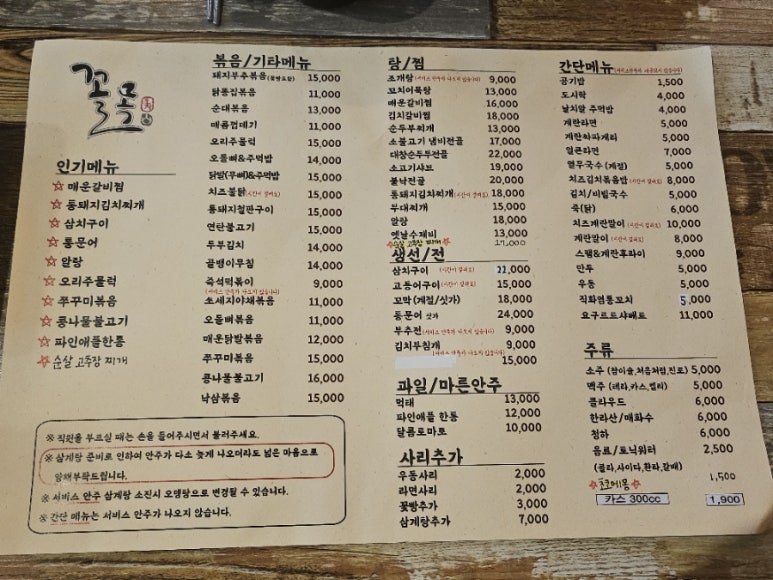 꼴목
인기메뉴
☆ 매운갈비찜
☆ 통돼지김치찌개
☆ 삼치구이
☆ 통문어
☆ 알탕
☆ 오리주물럭
☆ 쭈꾸미볶음
☆ 콩나물불고기
☆ 파인애플한통
☆ 순살 고추장 찌개
※ 직원을 부르실 때는 손을 들어주시면서 불러주세요.
※ 삼계탕 준비로 인하여 안주가 다소 늦게 나오더라도 넓은 마음으로
양해부탁드립니다.
※ 서비스 안주 삼계탕 소진시 오뎅탕으로 변경될 수 있습니다.
※ 간단 메뉴는 서비스 안주가 나오지 않습니다.
볶음/기타메뉴
돼지부추볶음(꽃빵포함) 15,000
닭똥집볶음 11,000
순대볶음 13,000
매콤껍데기 11,000
오리주물럭 15,000
오돌뼈&주먹밥 14,000
닭발(무뼈)&주먹밥 15,000
치즈불닭(시간이 걸려요) 15,000
통돼지철판구이 15,000
연탄불고기 15,000
두부김치 14,000
골뱅이무침 14,000
즉석떡볶이 9,000
(서비스 안주가 나오지 않습니다)
소세지야채볶음 11,000
오돌뼈볶음 11,000
매운닭발볶음 12,000
쭈꾸미볶음 15,000
콩나물불고기 16,000
낙삼볶음 15,000
탕/찜
조개탕(서비스 안주가 나오지 않습니다) 9,000
꼬치어묵탕 13,000
매운갈비찜 16,000
김치갈비찜 18,000
순두부찌개 13,000
소불고기 냄비전골 17,000
대창순두부전골 22,000
소고기샤브 19,000
불낙전골 20,000
통돼지김치찌개(시간이 걸려요) 18,000
부대찌개 15,000
알탕 18,000
옛날수제비 13,000
☆순살 고추장 찌개☆ 17,000
생선/전
삼치구이 (시간이 걸려요) 21,000
고등어구이(시간이 걸려요) 15,000
꼬막(계절/싯가) 18,000
통문어 싯가 24,000
부추전(서비스 안주가 나오지 않습니다) 9,000
김치부침개 9,000
(서비스 안주가 나오지 않습니다)
15,000
과일/마른안주
먹태 13,000
파인애플 한통 12,000
달콤토마토 10,000
사리추가
우동사리 2,000
라면사리 2,000
꽃빵추가 3,000
삼계탕추가 7,000
간단메뉴(서비스안주가 나오지 않습니다)
공기밥 1,500
도시락 4,000
날치알 주먹밥 4,000
계란라면 5,000
계란짜파게티 5,000
얼큰라면 7,000
열무국수(계절) 5,000
치즈김치볶음밥(시간이 걸려요) 8,000
김치/비빔국수 5,000
죽(닭) 6,000
치즈계란말이(시간이 걸려요) 10,000
계란말이(시간이 걸려요) 8,000
스팸&계란후라이 9,000
만두 5,000
우동 5,000
직화염통꼬치 5,000
요구르트샤베트 11,000
주류
소주 (참이슬,처음처럼,진로) 5,000
맥주 (테라,카스,켈리) 5,000
클라우드 6,000
한라산/매화수 6,000
청하 6,000
음료/토닉워터 2,500
(콜라,사이다,환타,갈배)
1,500
카스 300cc 1,900